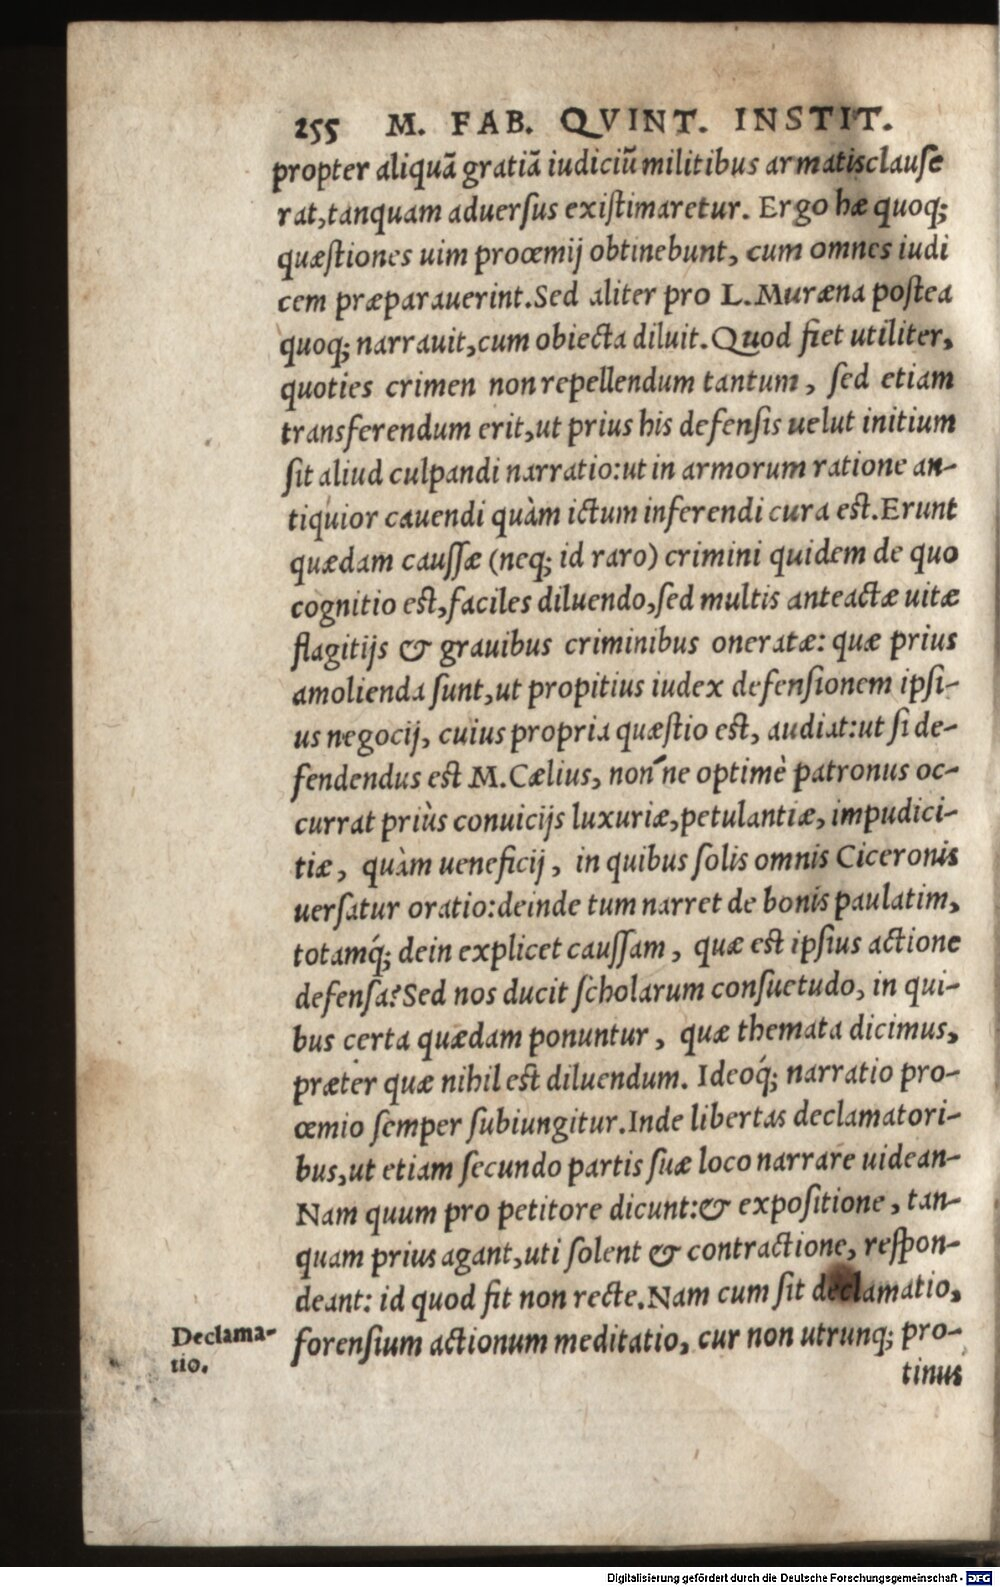 255 M. FAB. QVINT. INSTIT.
propter aliquã gratiã iudiciũ militibus armatis clause
rat, tanquam aduersus existimaretur. Ergo hæ quoq;
quæstiones uim procemij obtinebunt, cum omnes iudi
cem præparauerint. Sed aliter pro L. Muræna postea
quoq; narrauit, cum obiecta diluit. Quod fiet utiliter,
quoties crimen non repellendum tantum, sed etiam
transferendum erit, ut prius his defensis uelut initium
sit aliud culpandi narratio: ut in armorum ratione an-
tiquior cauendi quàm ictum inferendi cura est. Erunt
quædam caussæ (neq; id raro) crimini quidem de quo
cognitio est, faciles diluendo, sed multis anteactæ uitæ
flagitijs & grauibus criminibus oneratæ: quæ prius
amolienda sunt, ut propitius iudex defensionem ipsi-
us negocij, cuius propria quæstio est, audiat: ut si de-
fendendus est M. Cælius, non´ne optimè patronus oc-
currat priùs conuicijs luxuriæ, petulantiæ, impudici-
tiæ, quàm ueneficij, in quibus solis omnis Ciceronis
uersatur oratio: deinde tum narret de bonis paulatim,
totamq́; dein explicet caussam, quæ est ipsius actione
defensa? Sed nos ducit scholarum consuetudo, in qui-
bus certa quædam ponuntur, quæ themata dicimus,
præter quæ nihil est diluendum. Ideoq́; narratio pro-
œmio semper subiungitur. Inde libertas declamatori-
bus, ut etiam secundo partis suæ loco narrare uidean-
Nam quum pro petitore dicunt: & expositione, tan-
quam prius agant, uti solent & contractione, respon-
deant: id quod fit non recte. Nam cum sit declamatio,
Declama- forensium actionum meditatio, cur non utrunq; pro-
tio.
tinus
Digitalisierung gefördert durch die Deutsche Forschungsgemeinschaft - DFG